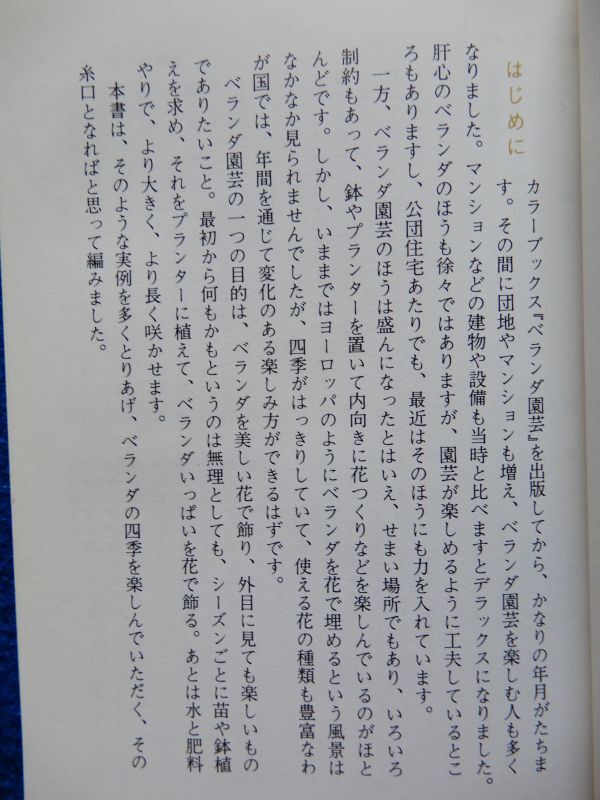 はじめに
カラーブックス『ベランダ園芸』を出版してから、かなりの年月がたちま
す。その間に団地やマンションも増え、ベランダ園芸を楽しむ人も多く
なりました。マンションなどの建物や設備も当時と比べますとデラックスになりました。
肝心のベランダのほうも徐々ではありますが、園芸が楽しめるように工夫しているとこ
ろもありますし、公団住宅あたりでも、最近はそのほうにも力を入れています。
一方、ベランダ園芸のほうは盛んになったとはいえ、せまい場所でもあり、いろいろ
制約もあって、鉢やプランターを置いて内向きに花つくりなどを楽しんでいるのがほと
んどです。しかし、いままではヨーロッパのようにベランダを花で埋めるという風景は
なかなか見られませんでしたが、四季がはっきりしていて、使える花の種類も豊富なわ
が国では、年間を通じて変化のある楽しみ方ができるはずです。
ベランダ園芸の一つの目的は、ベランダを美しい花で飾り、外目に見ても楽しいもの
でありたいこと。最初から何もかもというのは無理としても、シーズンごとに苗や鉢植
えを求め、それをプランターに植えて、ベランダいっぱいを花で飾る。あとは水と肥料
やりで、より大きく、より長く咲かせます。
本書は、そのような実例を多くとりあげ、ベランダの四季を楽しんでいただく、その
糸口となればと思って編みました。